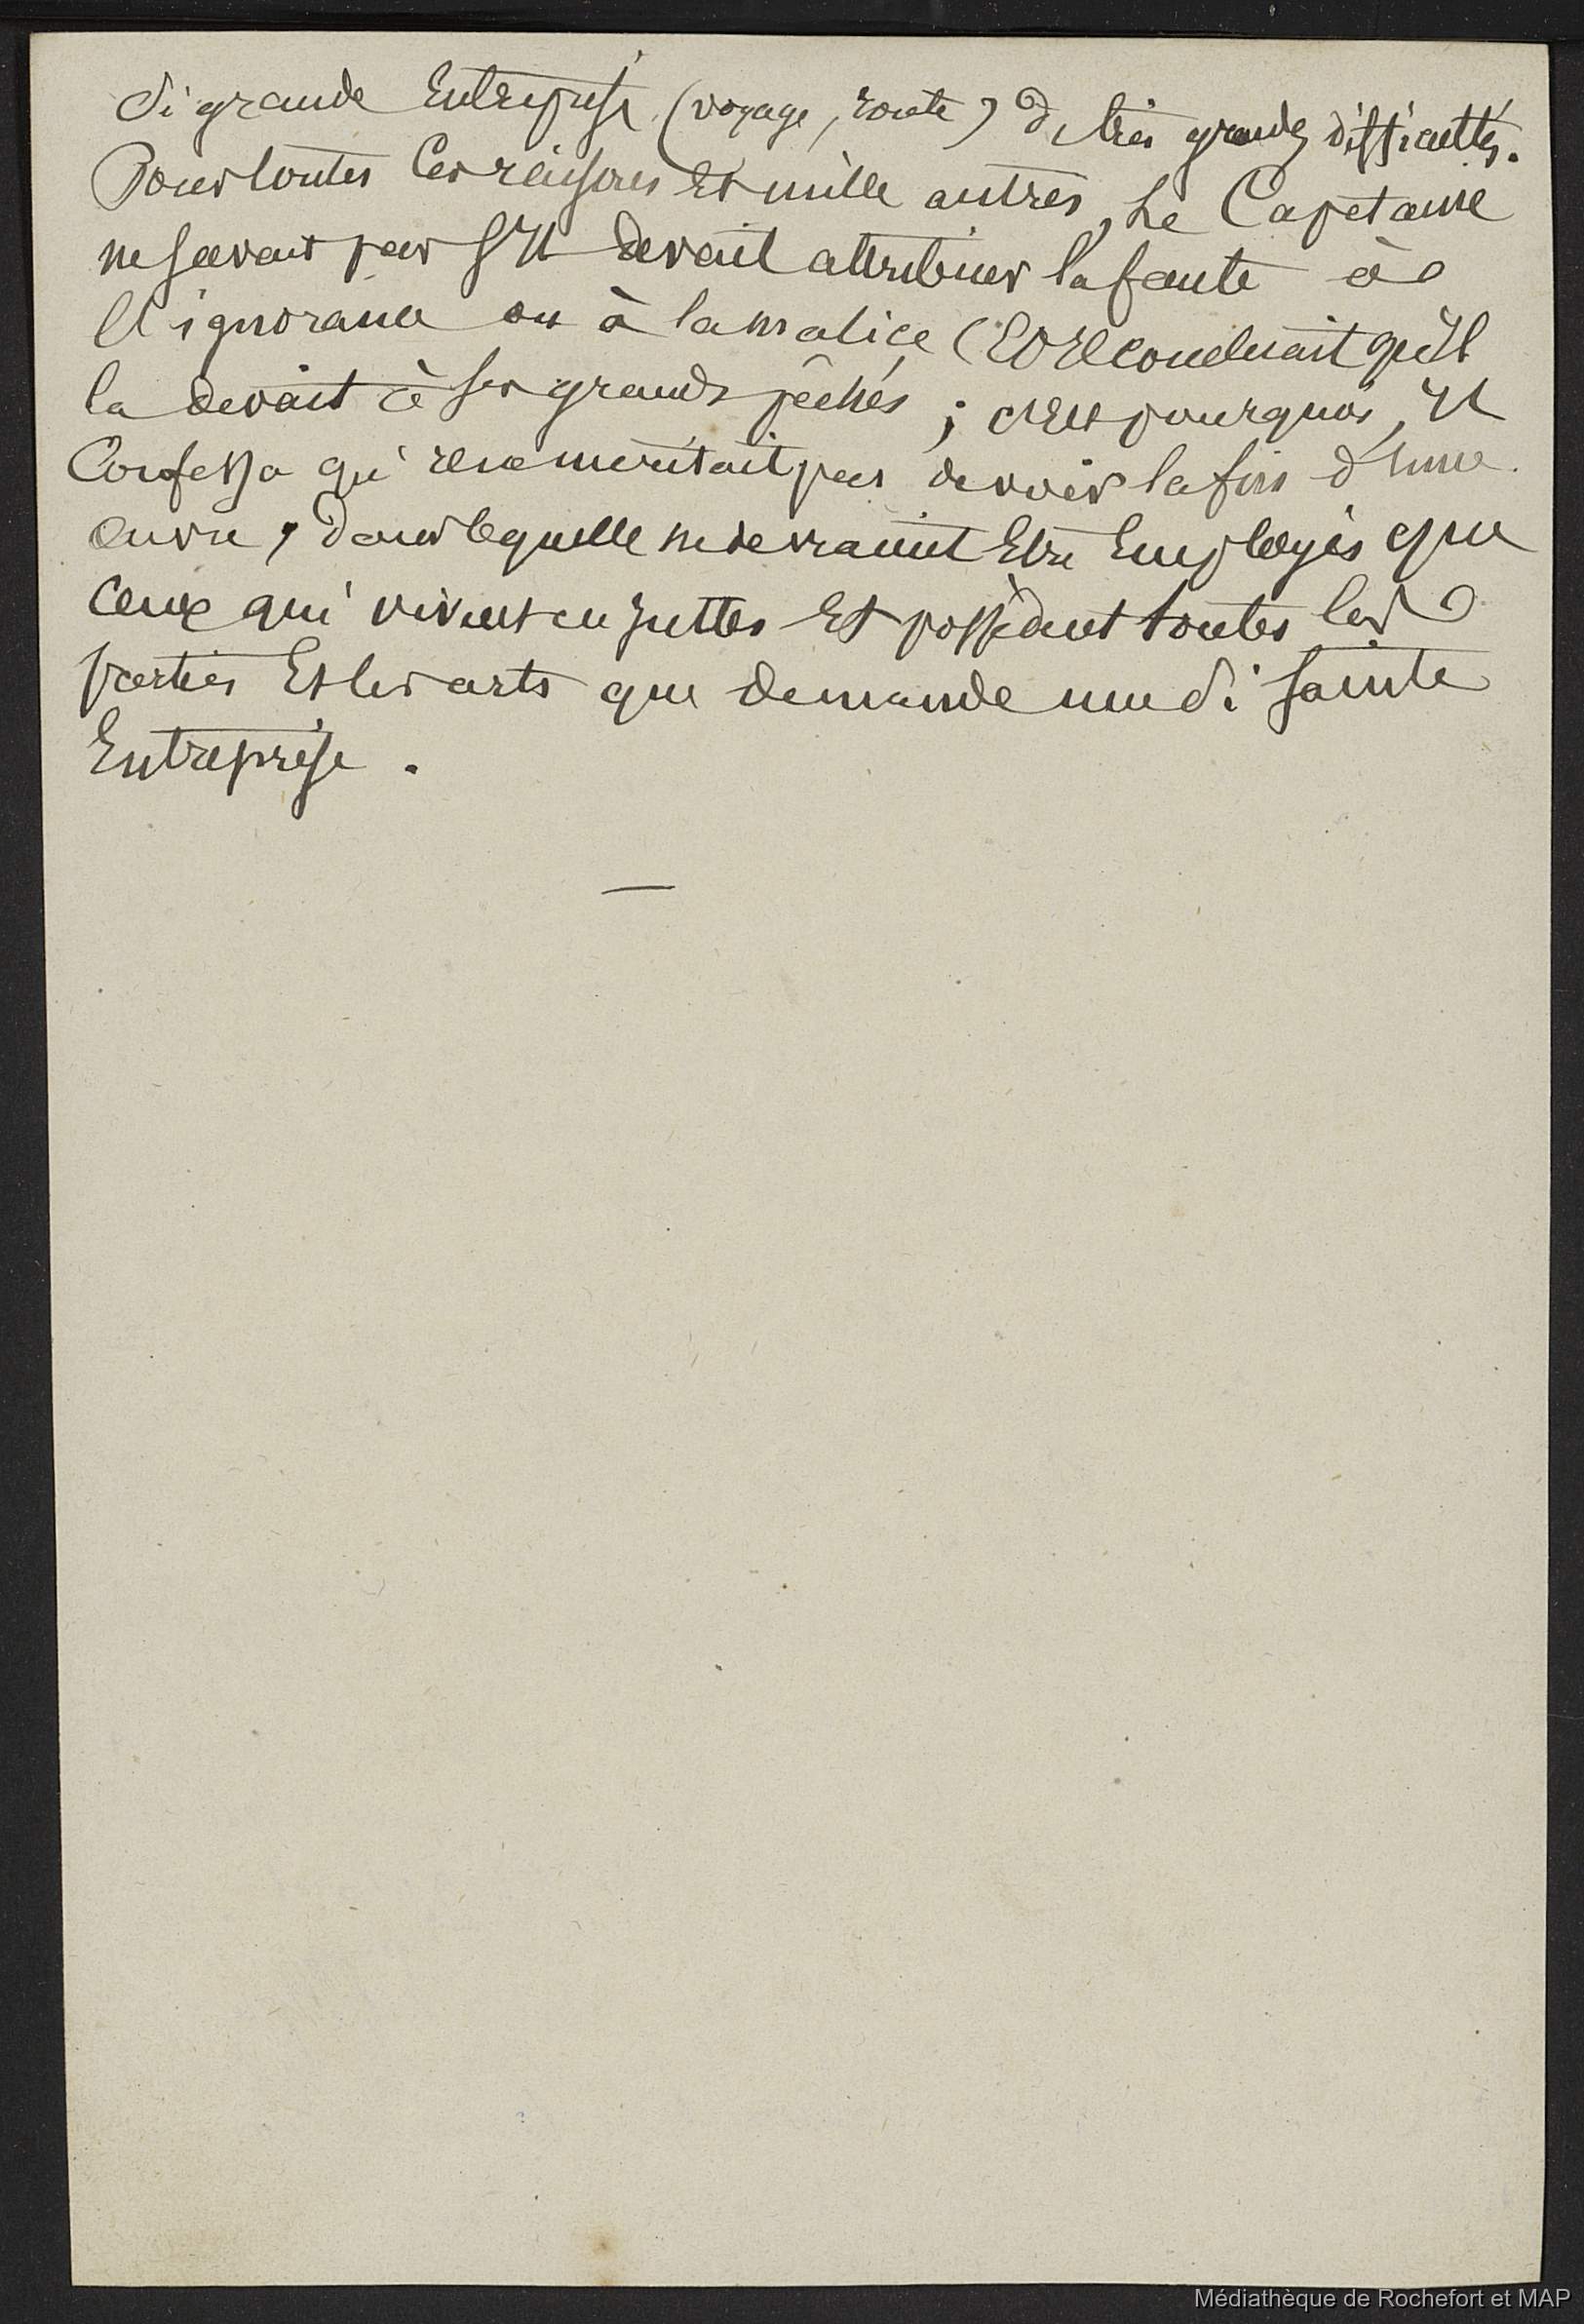 Si grande Entreprise (voyage, route) de très grandes difficultés.
Pour toutes ces raisons Et mille autres, Le Capetaine
ne savait pas s'Il devait attribuer la faute à
l'ignorance ou à la malice (Et Il concluait qu'Il
la devait à ses grands péchés ; c'Est pourquoi, Il
Confessa qu'il ne méritait pas de voir la fin d'une
œuvre, dans laquelle ne devraient Etre Employés que
ceux qui vivent en justes Et possèdent toutes les
parties Et les arts que demande une si sainte
Entreprise.
Médiathèque de Rochefort et MAP